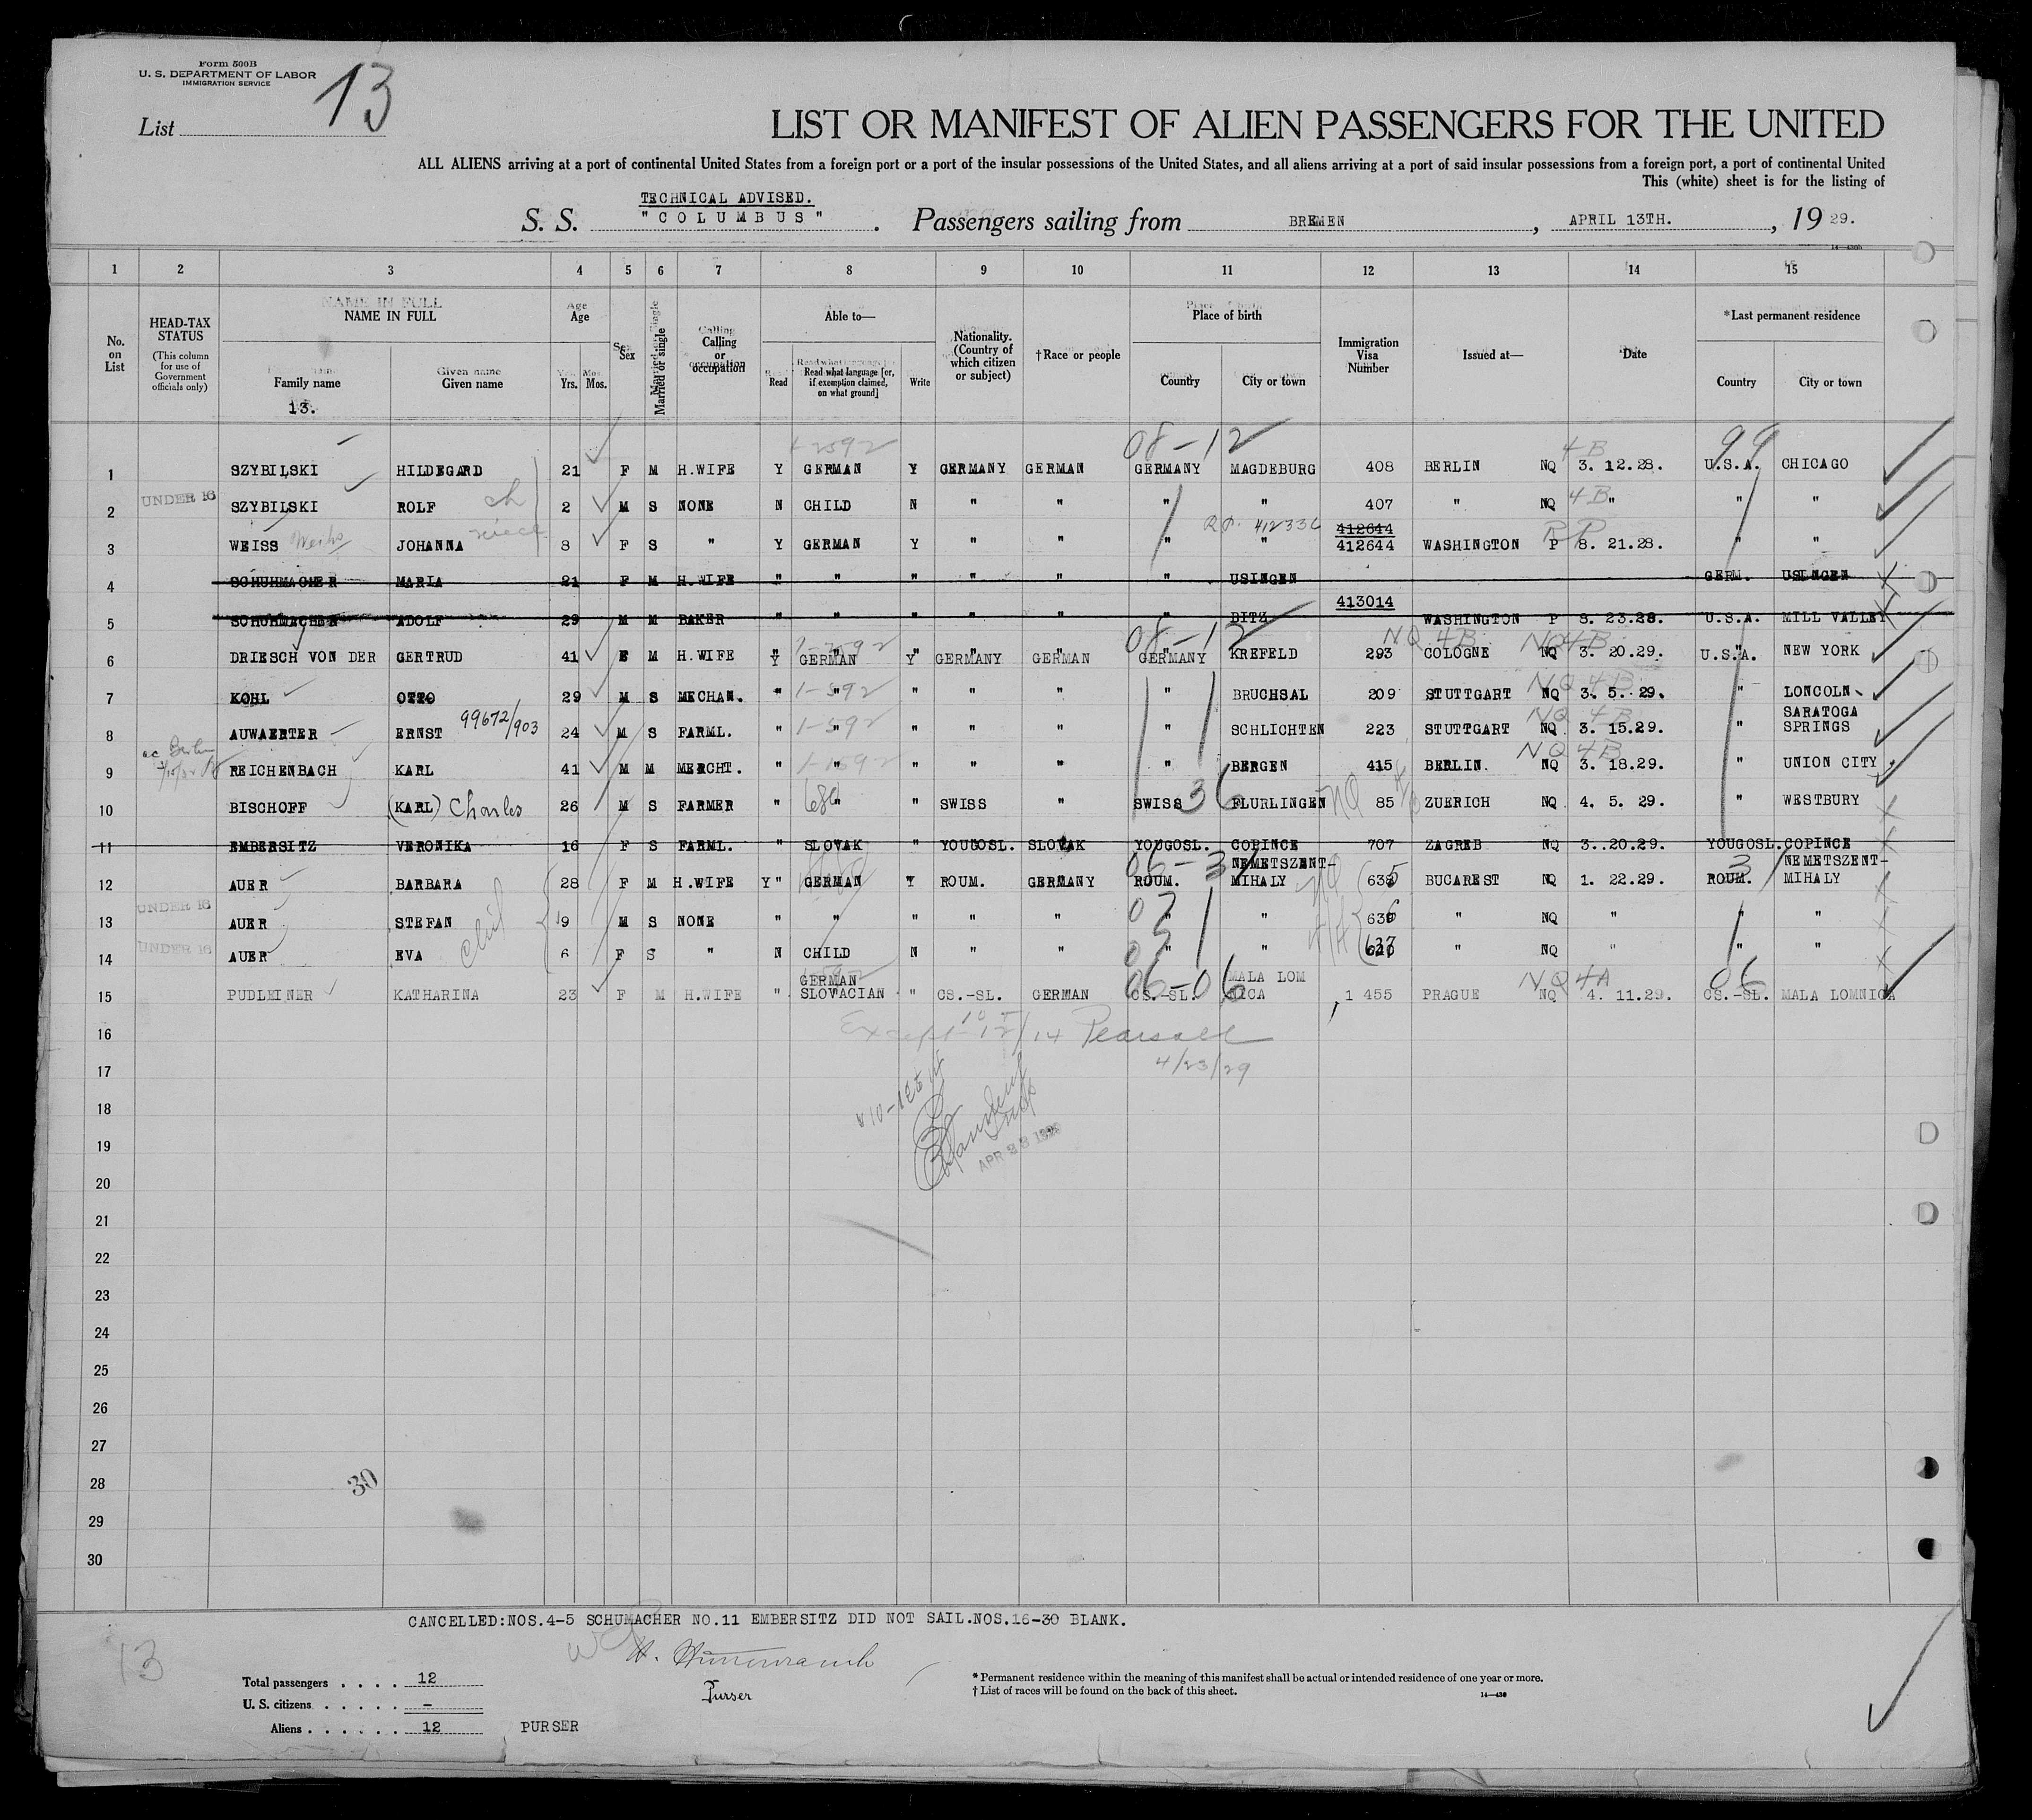 Form 500B
U. S. DEPARTMENT OF LABOR
IMMIGRATION SERVICE
13
List
LIST OR MANIFEST OF ALIEN PASSENGERS FOR THE UNITED
ALL ALIENS arriving at a port of continental United States from a foreign port or a port of the insular possessions of the United States, and all aliens arriving at a port of said insular possessions from a foreign port, a port of continental United
This (white) sheet is for the listing of
TECHNICAL ADVISED.
S. S. "COLUMBUS". Passengers sailing from BREMEN, APRIL 13TH., 19 29.
1 2 3 4 5 6 7 8 9 10 11 12 13 14 15
No. on List
HEAD-TAX STATUS (This column for use of Government officials only)
NAME IN FULL
Family name Given name
13.
Age Yrs. Mos.
Sex
Married or single
Calling or occupation
Able to—
Read
Read what language [or, if exemption claimed, on what ground]
Write
Nationality. (Country of which citizen or subject)
†Race or people
Place of birth
Country City or town
Immigration Visa Number
Issued at—
Date
*Last permanent residence
Country City or town
08-12 4B 99
1 SZYBILSKI HILDEGARD 21 F M H.WIFE Y GERMAN Y GERMANY GERMAN GERMANY MAGDEBURG 408 BERLIN NQ 3. 12.28. U.S.A. CHICAGO
2 UNDER 16 SZYBILSKI ROLF ch 2 M S NONE N CHILD N " " " " 407 " NQ 4B " " "
412336 412644
3 WEISS Weihs JOHANNA niece 8 F S " Y GERMAN Y " " " " 412644 WASHINGTON P RP 8. 21.28. " "
4 SCHUHMACHER MARIA 21 F M H.WIFE " " " " " " USINGEN GERM. USINGEN
413014
5 SCHUHMACHER ADOLF 29 M M BAKER " " " " " " BITZ WASHINGTON P 8. 23.28. U.S.A. MILL VALLEY
08-12 NQ 4B NQ4B
6 DRIESCH VON DER GERTRUD 41 F M H.WIFE Y GERMAN Y GERMANY GERMAN GERMANY KREFELD 293 COLOGNE NQ 3. 20.29. U.S.A. NEW YORK
7 KOHL OTTO 29 M S MECHAN. " " " " " " BRUCHSAL 209 STUTTGART NQ 4B NQ 3. 5. 29. " LONCOLN
8 AUWAERTER ERNST 99672/903 24 M S FARML. " " " " " " SCHLICHTEN 223 STUTTGART NQ 4B NQ 3. 15.29. " SARATOGA SPRINGS
9 REICHENBACH KARL 41 M M MERCHT. " " " " " " BERGEN 415 BERLIN NQ 4B NQ 3. 18.29. " UNION CITY.
10 BISCHOFF (KARL) Charles 26 M S FARMER " " " SWISS " SWISS 36 FLURLINGEN 85 ZUERICH NQ 4. 5. 29. " WESTBURY
11 EMBERSITZ VERONIKA 16 F S FARML. " SLOVAK " YOUGOSL. SLOVAK YOUGOSL. COPINCE 707 ZAGREB NQ 3. 20.29. YOUGOSL. COPINCE
12 AUER BARBARA 28 F M H.WIFE Y" GERMAN Y ROUM. GERMANY ROUM. NEMETSZENT-MIHALY 635 BUCAREST NQ 1. 22.29. ROUM. NEMETSZENT-MIHALY
13 UNDER 16 AUER STEFAN 9 M S NONE " " " " " " " 636 " NQ " " "
14 UNDER 16 AUER EVA 6 F S " N CHILD N " " " " 637 " NQ " " "
15 PUDLEINER KATHARINA 23 F M H.WIFE " GERMAN SLOVACIAN " CS.-SL. GERMAN CS.-SL. 06-06 MALA LOMNICA 1 455 PRAGUE NQ 4A NQ 4. 11.29. 06 CS.-SL. MALA LOMNICA
16 Except 12/14 Pearsall
17 4/23/29
18
19
20
21
22
23
24
25
26
27
28 30
29
30
CANCELLED:NOS.4-5 SCHUMACHER NO.11 EMBERSITZ DID NOT SAIL.NOS.16-30 BLANK.
13
Purser
Total passengers . . . . 12
U. S. citizens . . . . . –
Aliens . . . . . . 12
PURSER
* Permanent residence within the meaning of this manifest shall be actual or intended residence of one year or more.
† List of races will be found on the back of this sheet.
14—430